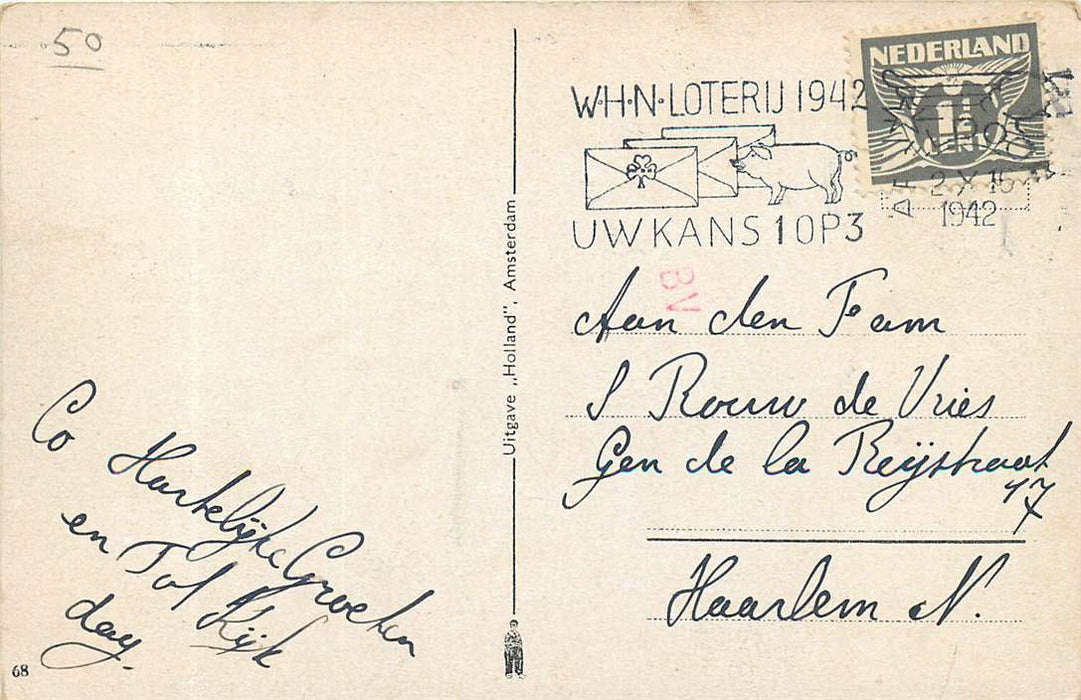 50
Co Hartelijke Groeten
en Tot Kijk
day.
68
Uitgave „Holland", Amsterdam
NEDERLAND
W·H·N·LOTERIJ 1942
UW KANS 1 OP 3
2 X 16
1942
BV
Aan den Fam
S Rouw de Vries
Gen de la Reijstraat
17
Haarlem N.